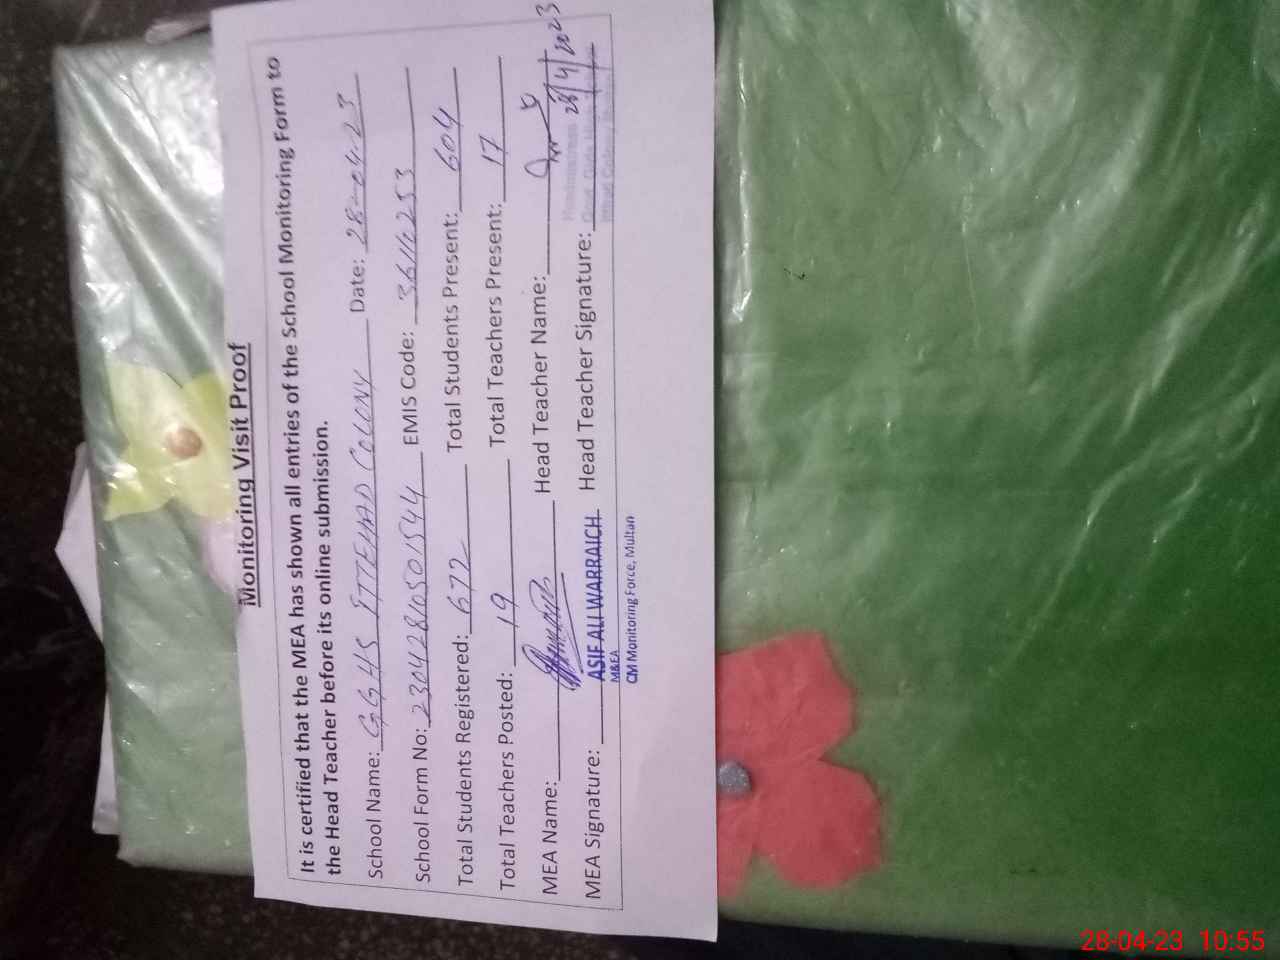 Monitoring Visit Proof
It is certified that the MEA has shown all entries of the School Monitoring Form to
the Head Teacher before its online submission.
School Name: GGHS ITTEHAD COLONY Date: 28-04-23
School Form No: 23042810501544 EMIS Code: 36110253
Total Students Registered: 672 Total Students Present: 604
Total Teachers Posted: 19 Total Teachers Present: 17
MEA Name: Head Teacher Name:
28/4/2023
MEA Signature: ASIF ALI WARRAICH Head Teacher Signature:
M&EA
CM Monitoring Force, Multan
Headmistress
Govt. Girls
28-04-23 10:55